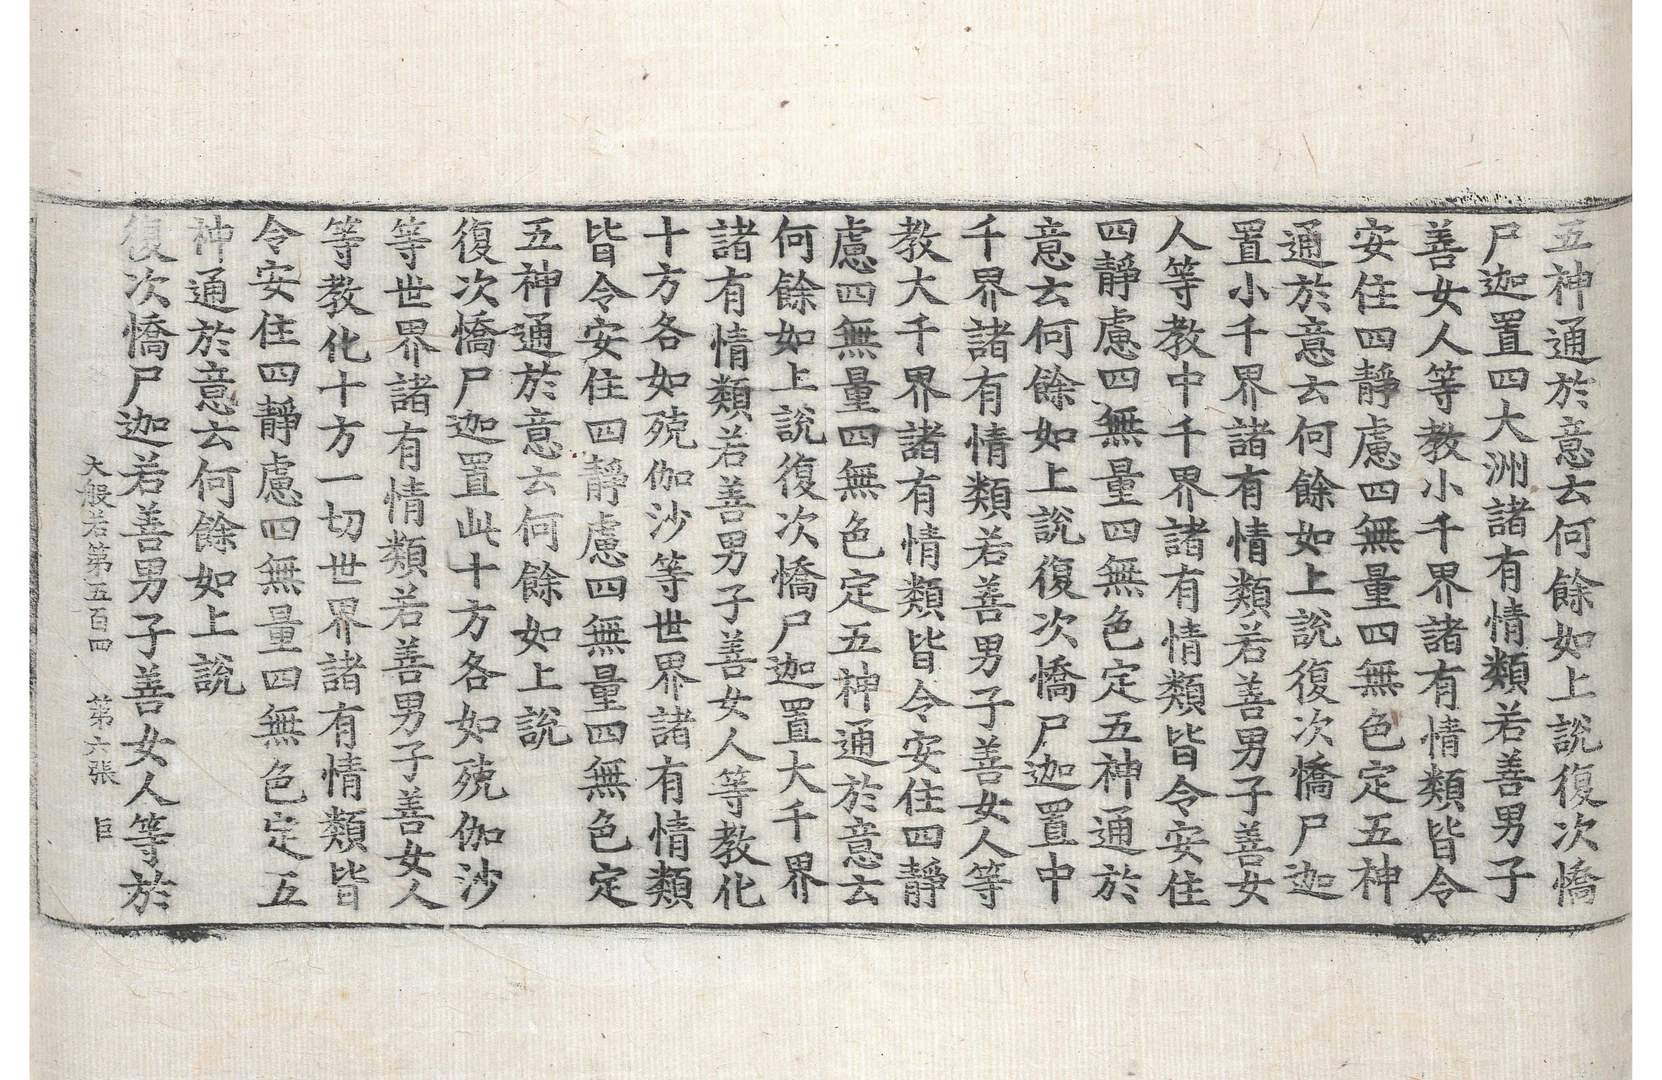 五神通於意云何餘如上說復次憍
尸迦置四大洲諸有情類若善男子
善女人等教小千界諸有情類皆令
安住四靜慮四無量四無色定五神
通於意云何餘如上說復次憍尸迦
置小千界諸有情類若善男子善女
人等教中千界諸有情類皆令安住
四靜慮四無量四無色定五神通於
意云何餘如上說復次憍尸迦置中
千界諸有情類若善男子善女人等
教大千界諸有情類皆令安住四靜
慮四無量四無色定五神通於意云
何餘如上說復次憍尸迦置大千界
諸有情類若善男子善女人等教化
十方各如殑伽沙等世界諸有情類
皆令安住四靜慮四無量四無色定
五神通於意云何餘如上說
復次憍尸迦置此十方各如殑伽沙
等世界諸有情類若善男子善女人
等教化十方一切世界諸有情類皆
令安住四靜慮四無量四無色定五
神通於意云何餘如上說
復次憍尸迦若善男子善女人等於
大般若第五百四 第六張 巨